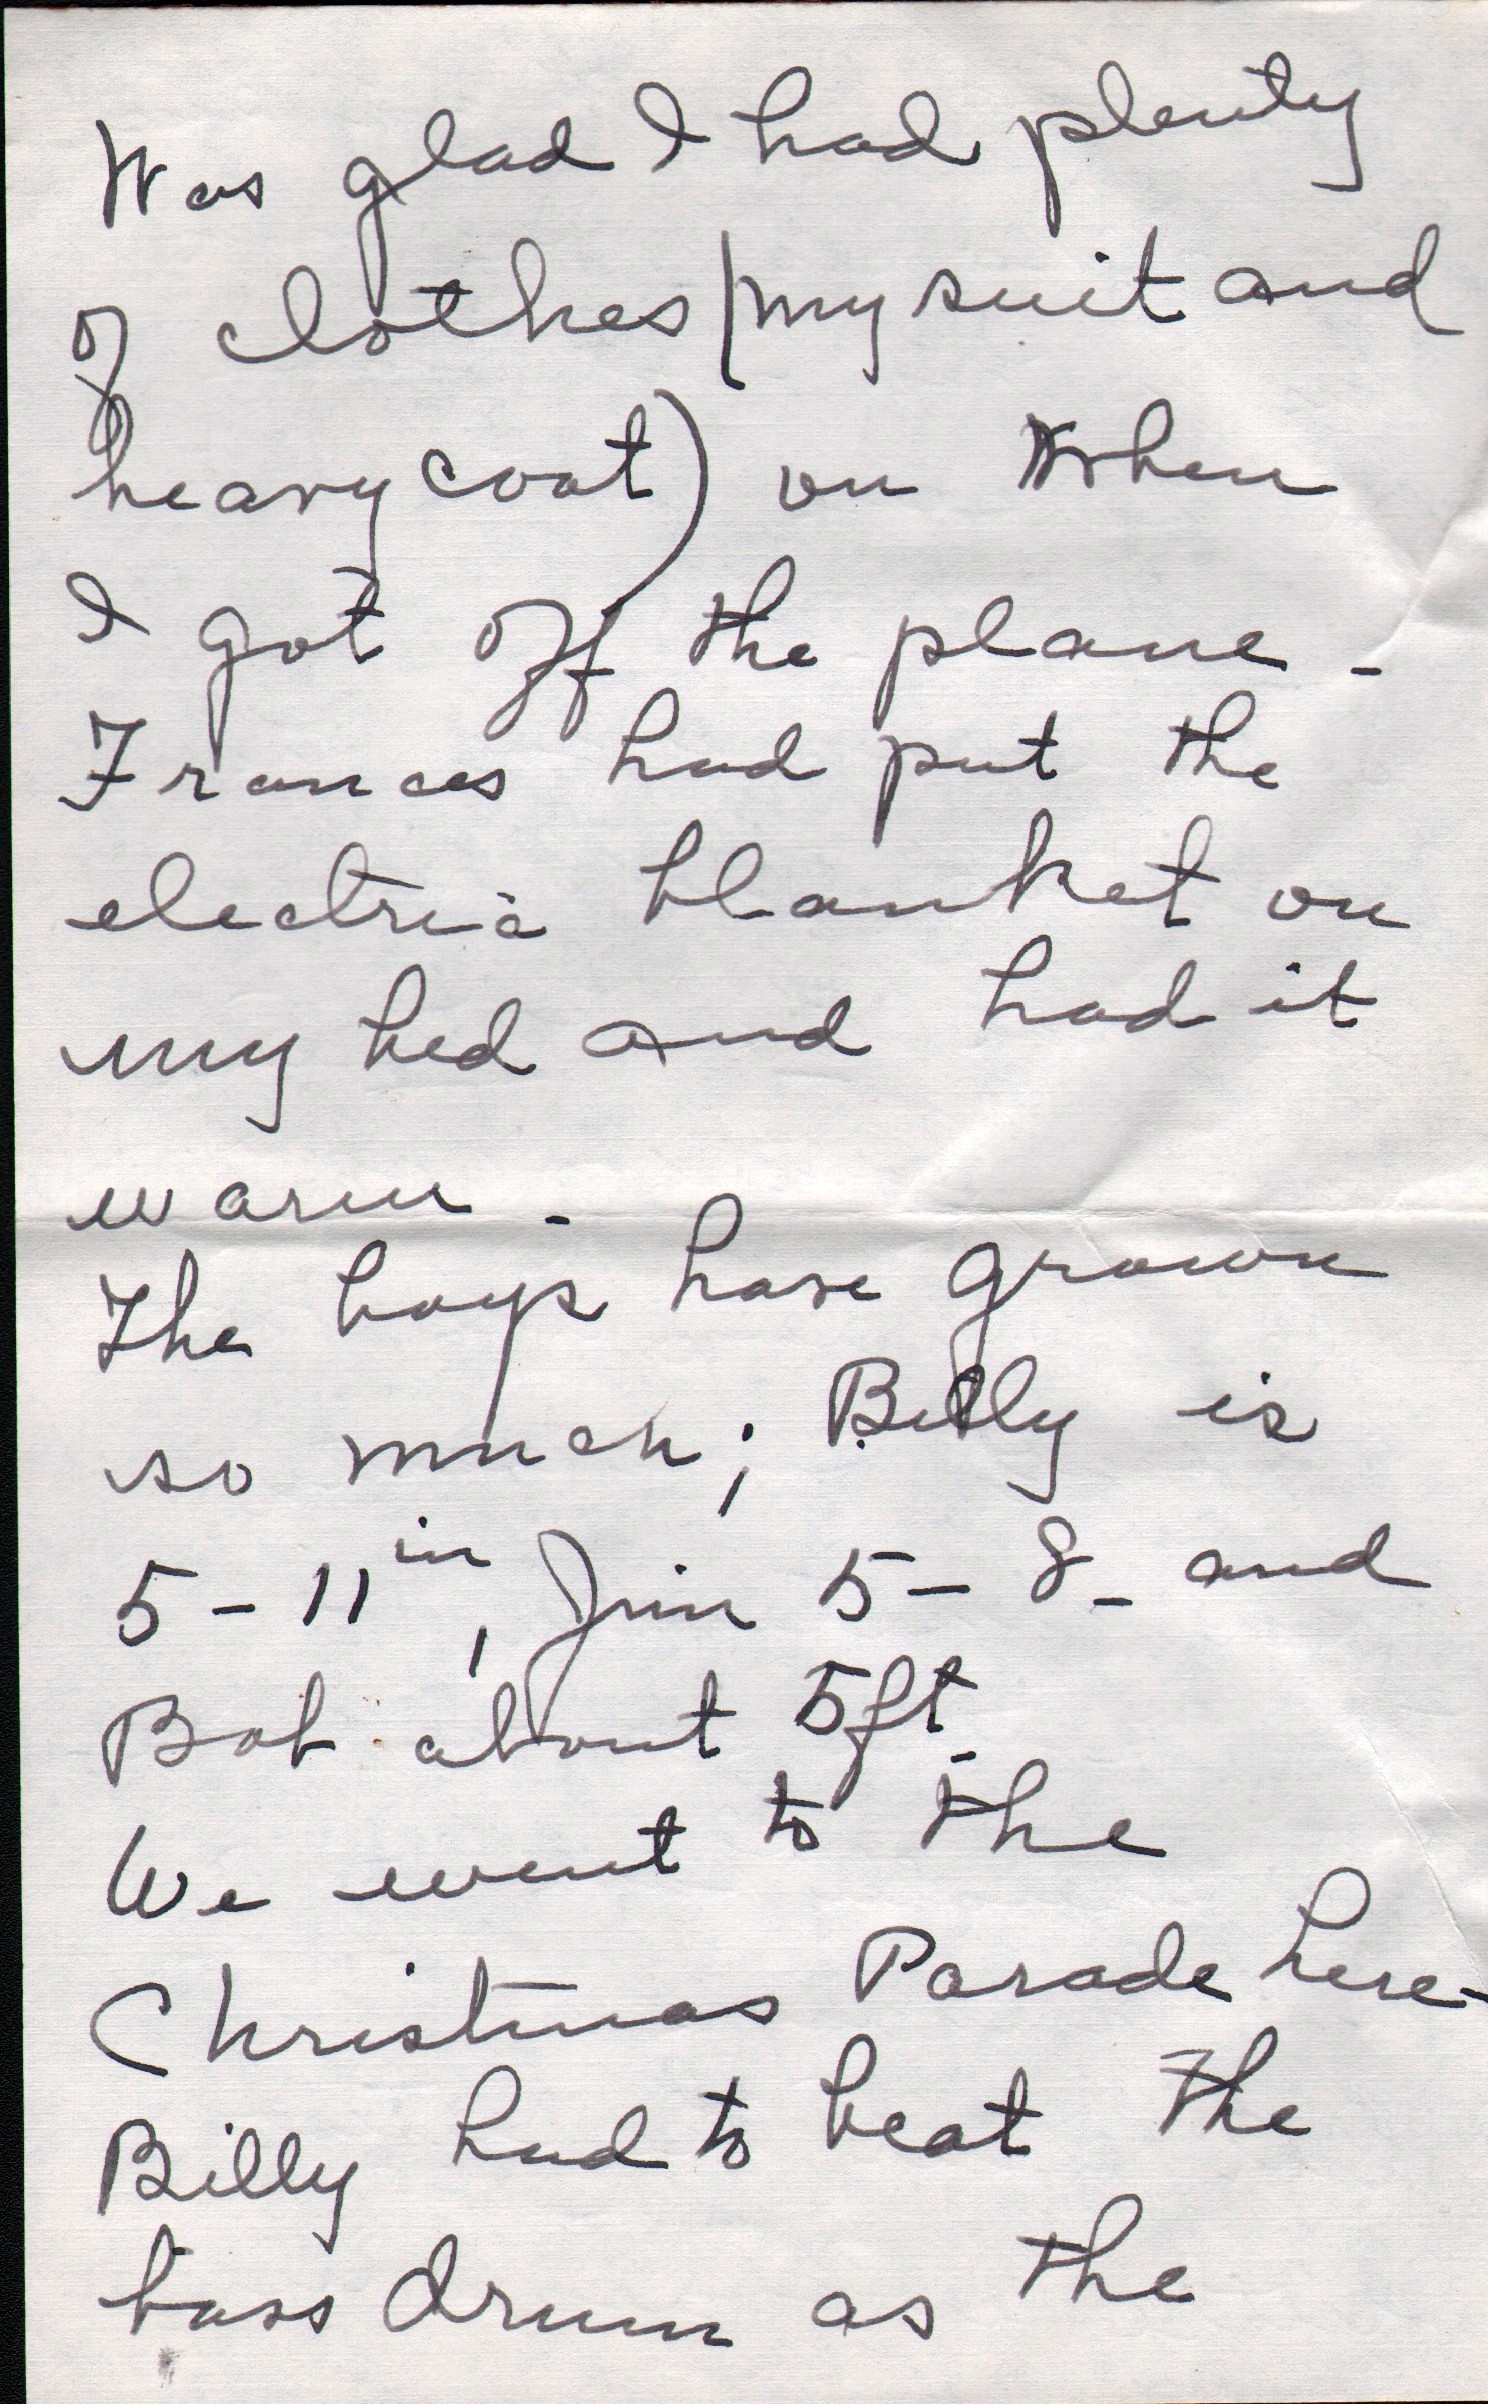 Was glad I had plenty
of clothes (my suit and
heavy coat) on when
I got off the plane -
Frances had put the
electric blanket on
my bed and had it
warm -
The boys have grown
so much; Billy is
5-11 in, Jim 5-8- and
Bob about 5ft-
We went to the
Christmas Parade here-
Billy had to beat the
bass drum as the